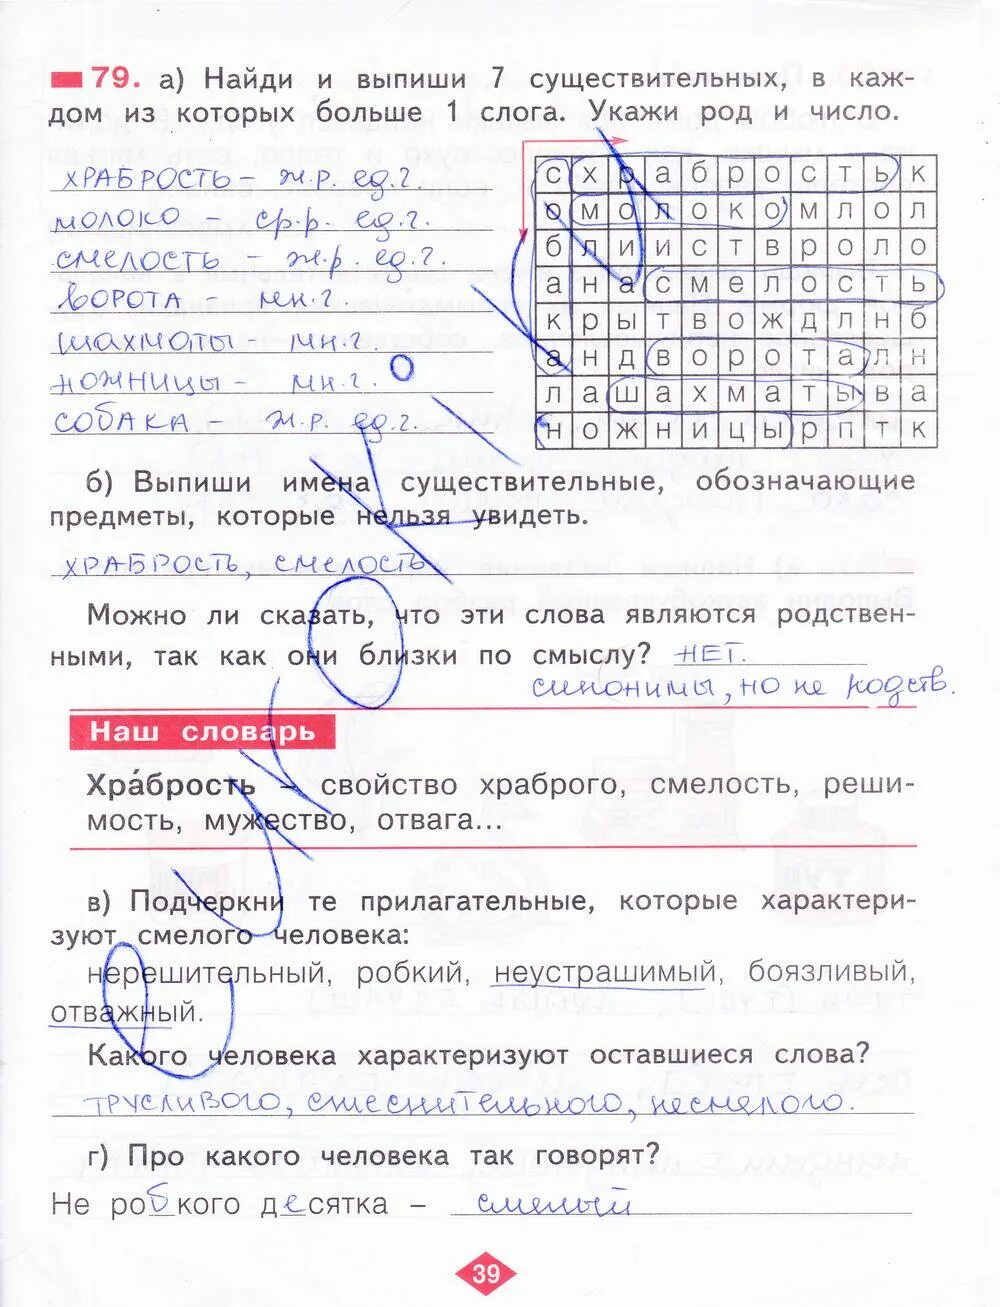 79. а) Найди и выпиши 7 существительных, в каж-
дом из которых больше 1 слога. Укажи род и число.
ХРАБРОСТЬ - ж.р. ед.ч.
МОЛОКО - ср.р. ед.ч.
СМЕЛОСТЬ - ж.р. ед.ч.
ВОРОТА мн.ч.
ШАХМАТЫ мн.ч.
НОЖНИЦЫ - мн.ч.
СОБАКА - ж.р. ед.ч.
с х р а б р о с т ь к
о м о л о к о м л о л
б л и и с т в р о л о
а н а с м е л о с т ь
к р ы т в о ж д л н б
а н д в о р о т а л н
л а ш а х м а т ы в а
н о ж н и ц ы р п т к
б) Выпиши имена существительные, обозначающие
предметы, которые нельзя увидеть.
ХРАБРОСТЬ, СМЕЛОСТЬ
Можно ли сказать, что эти слова являются родствен-
ными, так как они близки по смыслу? НЕТ.
синонимы, но не родств.
Наш словарь
Хра́брость – свойство храброго, смелость, реши-
мость, мужество, отвага...
в) Подчеркни те прилагательные, которые характери-
зуют смелого человека:
нерешительный, робкий, неустрашимый, боязливый,
отважный.
Какого человека характеризуют оставшиеся слова?
ТРУСЛИВОГО, стеснительного, несмелого.
г) Про какого человека так говорят?
Не робкого десятка – смелый
39